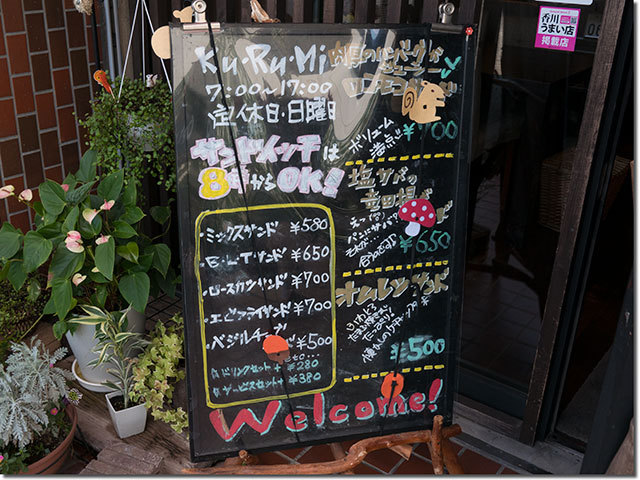 Ku・Ru・Mi
7:00〜17:00
定休日・日曜日
サンドイッチは
8時からOK!
ミックスサンド ¥580
B.L.Tサンド ¥650
ロースカツサンド ¥700
エビフライサンド ¥700
バジルチーズ ¥500
etc...
ドリンクセット+ ¥280
サービスセット+ ¥380
ボリューム
満点!
¥700
塩サバの
竜田揚げ
えっ
パンにサバ
¥650
オムレツサンド
¥500
Welcome!
香川
うまい店
掲載店